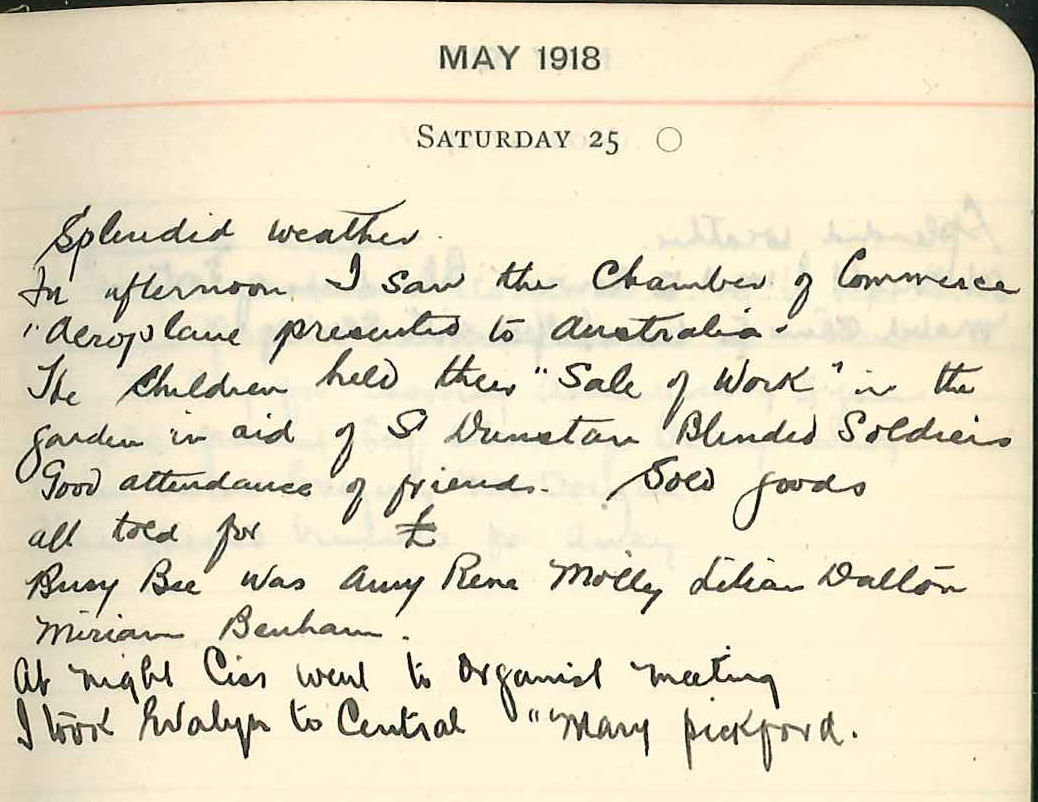 MAY 1918
SATURDAY 25
Splendid weather.
In afternoon I saw the Chamber of Commerce
"Aeroplane presented to Australia"
The Children held their "Sale of Work" in the
garden in aid of St Dunstan Blinded Soldiers
Good attendance of friends. Sold goods
all told for £
Busy Bee was Amy Rene Molly Lilian Dalton
Miriam Benham.
At night Ciss went to Organist meeting
I took Evalyn to Central "Mary Pickford.